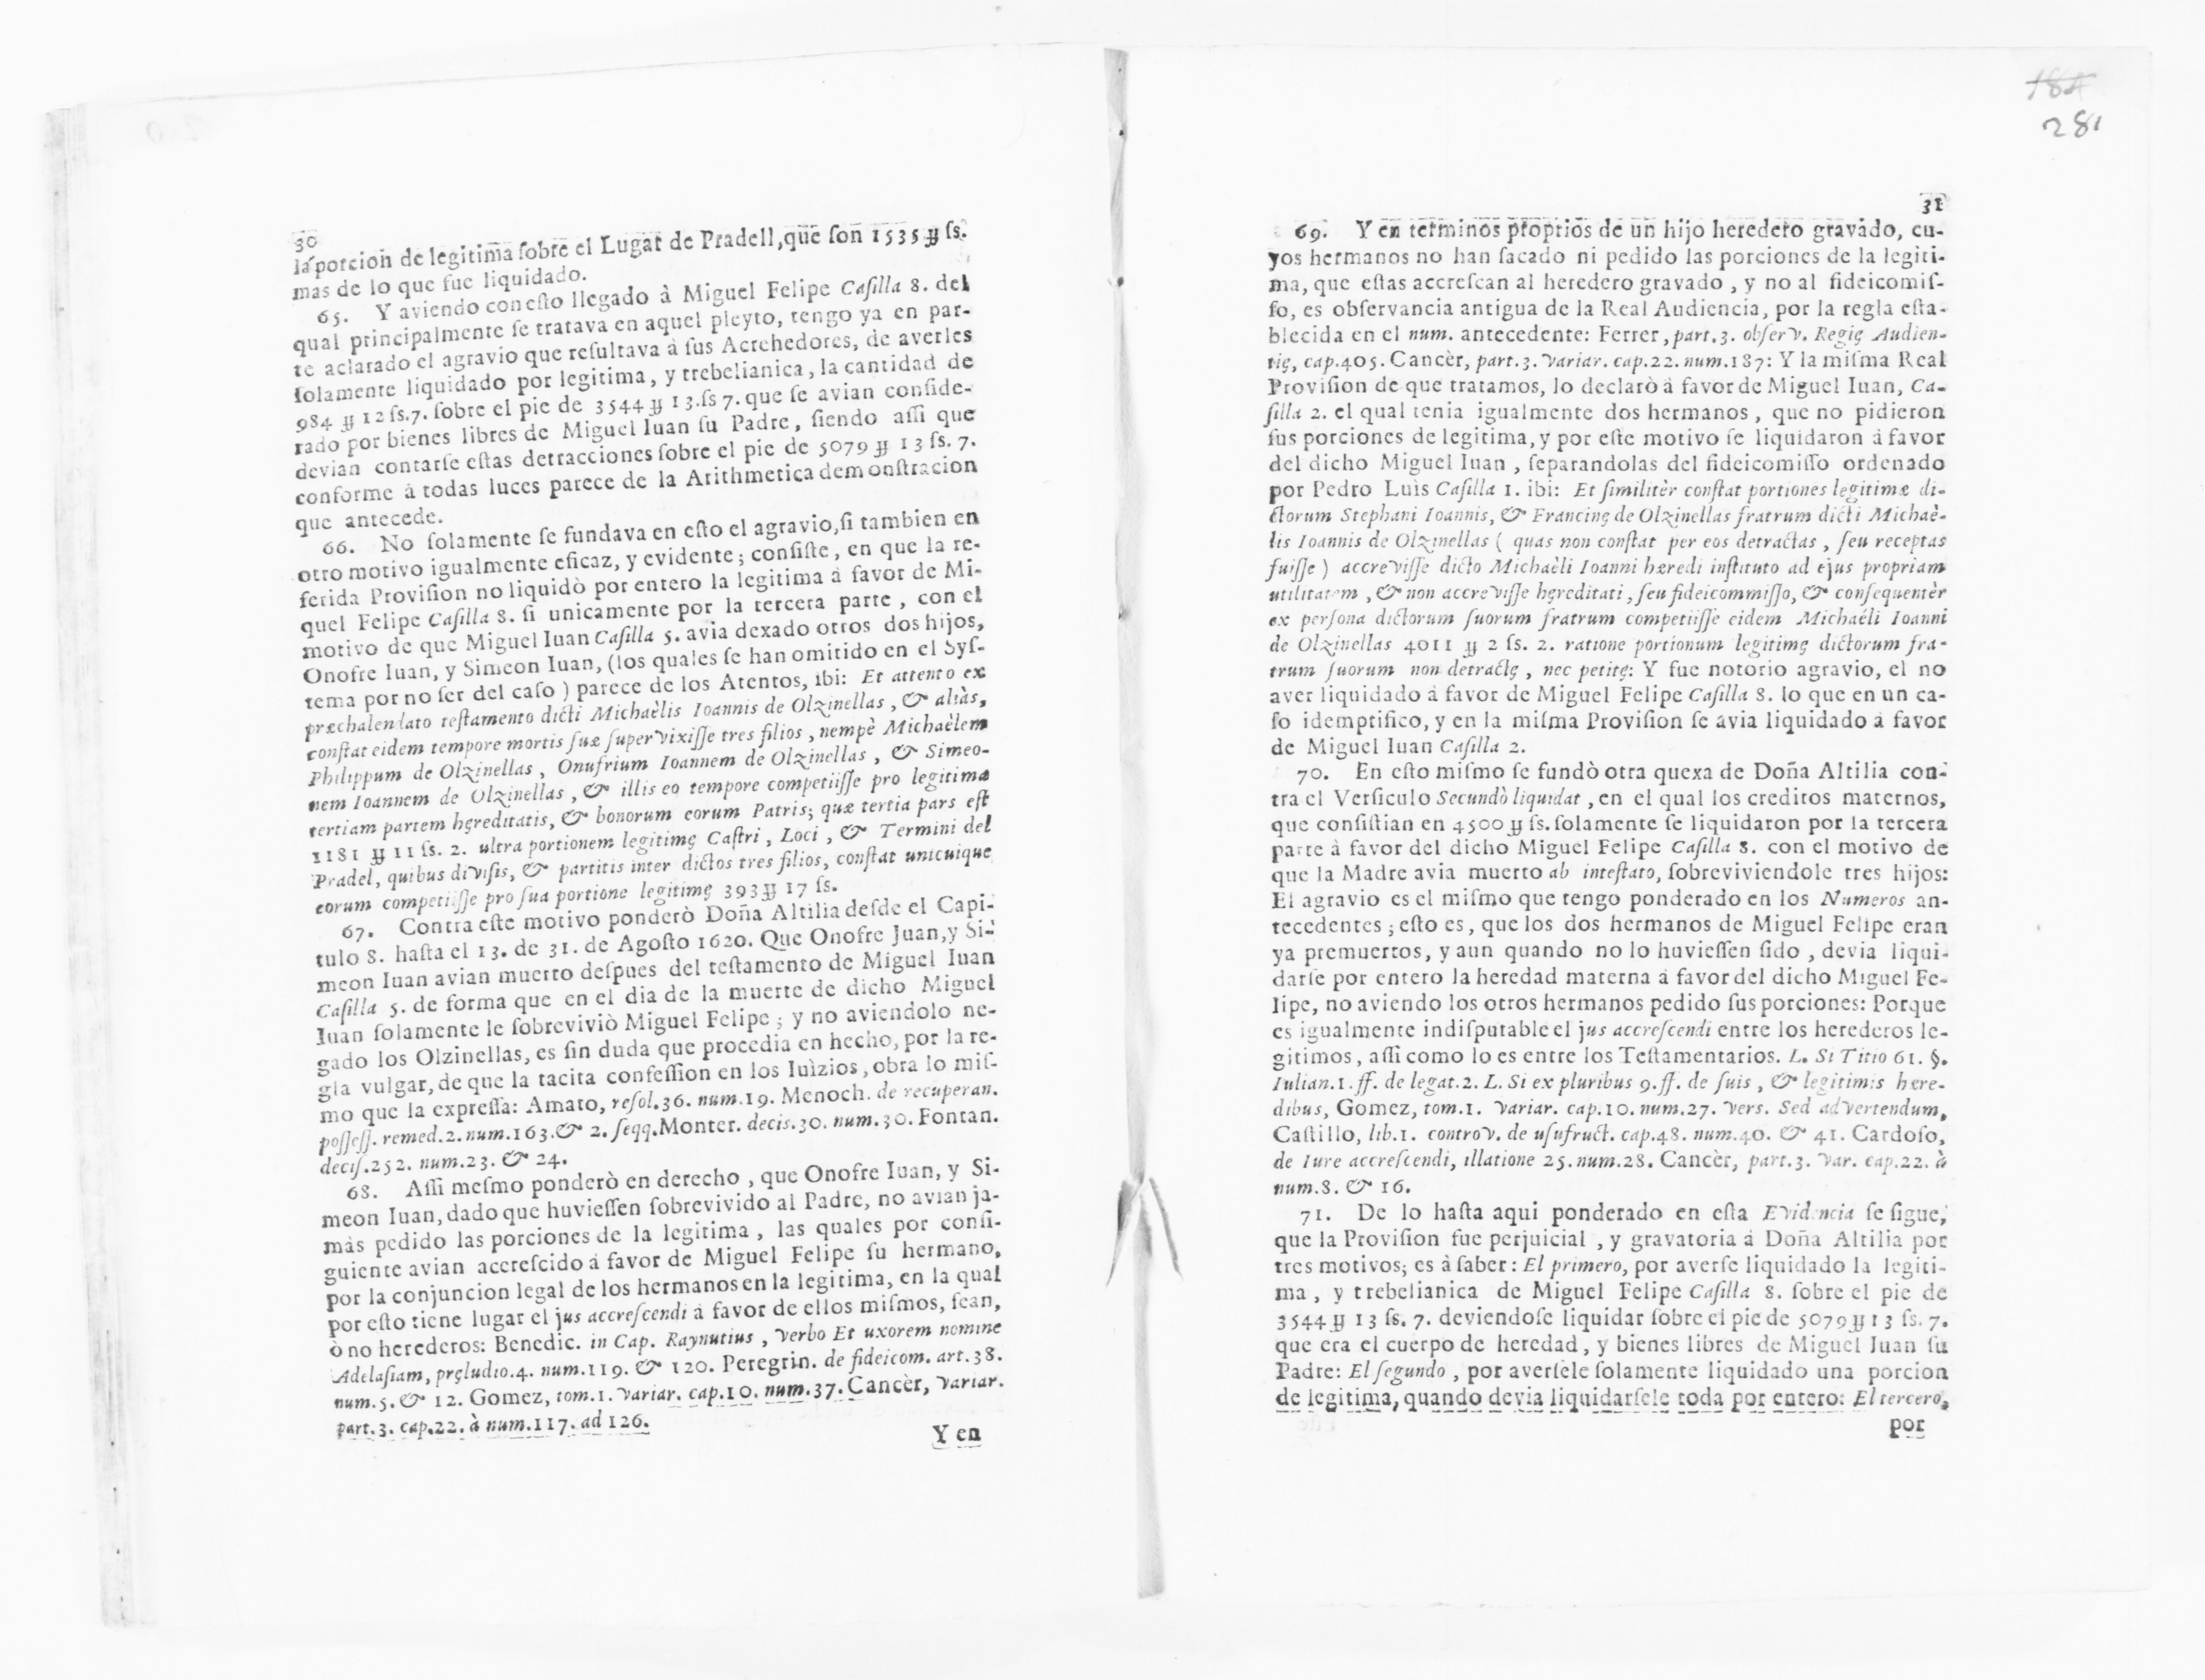 30
la porcion de legitima sobre el Lugar de Pradell, que son 1535 ỻ ſs.
mas de lo que fue liquidado.
65. Y aviendo con eſto llegado à Miguel Felipe Caſilla 8. del
qual principalmente ſe tratava en aquel pleyto, tengo ya en par-
te aclarado el agravio que reſultava à ſus Acrehedores, de averles
ſolamente liquidado por legitima, y trebelianica, la cantidad de
984 ỻ 12 ſs. 7. ſobre el pie de 3544 ỻ 13. ſs 7. que ſe avian conſide-
rado por bienes libres de Miguel Iuan ſu Padre, ſiendo aſſi que
devian contarſe eſtas detracciones ſobre el pie de 5079 ỻ 13 ſs. 7.
conforme à todas luces parece de la Arithmetica demonſtracion
que antecede.
66. No ſolamente ſe fundava en eſto el agravio, ſi tambien en
otro motivo igualmente eficaz, y evidente; conſiſte, en que la re-
ferida Proviſion no liquidò por entero la legitima à favor de Mi-
quel Felipe Caſilla 8. ſi unicamente por la tercera parte, con el
motivo de que Miguel Iuan Caſilla 5. avia dexado otros dos hijos,
Onofre Iuan, y Simeon Iuan, (los quales ſe han omitido en el Syſ-
tema por no ſer del caſo) parece de los Atentos, ibi: Et attento ex
præchalendato teſtamento dicti Michaèlis Ioannis de Olzinellas, & aliàs,
conſtat eidem tempore mortis ſuæ ſupervixiſſe tres filios, nempè Michaèlem
Philippum de Olzinellas, Onufrium Ioannem de Olzinellas, & Simeo-
nem Ioannem de Olzinellas, & illis eo tempore competiiſſe pro legitima
tertiam partem hęreditatis, & bonorum eorum Patris; quæ tertia pars eſt
1181 ỻ 11 ſs. 2. ultra portionem legitimę Caſtri, Loci, & Termini del
Pradel, quibus diviſis, & partitis inter dictos tres filios, conſtat unicuique
eorum competiiſſe pro ſua portione legitimę 393 ỻ 17 ſs.
67. Contra eſte motivo ponderò Doña Altilia deſde el Capi-
tulo 8. haſta el 13. de 31. de Agoſto 1620. Que Onofre Juan, y Si-
meon Iuan avian muerto deſpues del teſtamento de Miguel Iuan
Caſilla 5. de forma que en el dia de la muerte de dicho Miguel
Iuan ſolamente le ſobreviviò Miguel Felipe; y no aviendolo ne-
gado los Olzinellas, es ſin duda que procedia en hecho, por la re-
gla vulgar, de que la tacita confeſſion en los Iuìzios, obra lo miſ-
mo que la expreſſa: Amato, reſol. 36. num. 19. Menoch. de recuperan.
poſſeſſ. remed. 2. num. 163. & 2. ſeqq. Monter. decis. 30. num. 30. Fontan.
deciſ. 252. num. 23. & 24.
68. Aſſi meſmo ponderò en derecho, que Onofre Iuan, y Si-
meon Iuan, dado que huvieſſen ſobrevivido al Padre, no avian ja-
màs pedido las porciones de la legitima, las quales por conſi-
guiente avian accreſcido à favor de Miguel Felipe ſu hermano,
por la conjuncion legal de los hermanos en la legitima, en la qual
por eſto tiene lugar el jus accreſcendi à favor de ellos miſmos, ſean,
ò no herederos: Benedic. in Cap. Raynutius, verbo Et uxorem nomine
Adelaſiam, pręludio. 4. num. 119. & 120. Peregrin. de fideicom. art. 38.
num. 5. & 12. Gomez, tom. 1. variar. cap. 10. num. 37. Cancèr, variar.
part. 3. cap. 22. à num. 117. ad 126.
Y en
184
281
31
69. Y en terminos proprios de un hijo heredero gravado, cu-
yos hermanos no han ſacado ni pedido las porciones de la legiti-
ma, que eſtas accreſcan al heredero gravado, y no al fideicomiſ-
ſo, es obſervancia antigua de la Real Audiencia, por la regla eſta-
blecida en el num. antecedente: Ferrer, part. 3. obſerv. Regię Audien-
tię, cap. 405. Cancèr, part. 3. variar. cap. 22. num. 187: Y la miſma Real
Proviſion de que tratamos, lo declarò à favor de Miguel Iuan, Ca-
ſilla 2. el qual tenia igualmente dos hermanos, que no pidieron
ſus porciones de legitima, y por eſte motivo ſe liquidaron à favor
del dicho Miguel Iuan, ſeparandolas del fideicomiſſo ordenado
por Pedro Luis Caſilla 1. ibi: Et ſimilitèr conſtat portiones legitimæ di-
ctorum Stephani Ioannis, & Francinę de Olzinellas fratrum dicti Michaè-
lis Ioannis de Olzinellas (quas non conſtat per eos detractas, ſeu receptas
fuiſſe) accreviſſe dicto Michaèli Ioanni hæredi inſtituto ad ejus propriam
utilitatem, & non accreviſſe hęreditati, ſeu fideicommiſſo, & conſequentèr
ex perſona dictorum ſuorum fratrum competiiſſe eidem Michaéli Ioanni
de Olzinellas 4011 ỻ 2 ſs. 2. ratione portionum legitimę dictorum fra-
trum ſuorum non detractę, nec petitę: Y fue notorio agravio, el no
aver liquidado à favor de Miguel Felipe Caſilla 8. lo que en un ca-
ſo idemptifico, y en la miſma Proviſion ſe avia liquidado à favor
de Miguel Iuan Caſilla 2.
70. En eſto miſmo ſe fundò otra quexa de Doña Altilia con-
tra el Verſiculo Secundò liquidat, en el qual los creditos maternos,
que conſiſtian en 4500 ỻ ſs. ſolamente ſe liquidaron por la tercera
parte à favor del dicho Miguel Felipe Caſilla 8. con el motivo de
que la Madre avia muerto ab inteſtato, ſobreviviendole tres hijos:
El agravio es el miſmo que tengo ponderado en los Numeros an-
tecedentes; eſto es, que los dos hermanos de Miguel Felipe eran
ya premuertos, y aun quando no lo huvieſſen ſido, devia liqui-
darſe por entero la heredad materna à favor del dicho Miguel Fe-
lipe, no aviendo los otros hermanos pedido ſus porciones: Porque
es igualmente indiſputable el jus accreſcendi entre los herederos le-
gitimos, aſſi como lo es entre los Teſtamentarios. L. Si Titio 61. §.
Iulian. 1. ff. de legat. 2. L. Si ex pluribus 9. ff. de ſuis, & legitimis hære-
dibus, Gomez, tom. 1. variar. cap. 10. num. 27. verſ. Sed advertendum,
Caſtillo, lib. 1. controv. de uſufruct. cap. 48. num. 40. & 41. Cardoſo,
de Iure accreſcendi, illatione 25. num. 28. Cancèr, part. 3. var. cap. 22. à
num. 8. & 16.
71. De lo haſta aqui ponderado en eſta Evidencia ſe ſigue,
que la Proviſion fue perjuicial, y gravatoria à Doña Altilia por
tres motivos; es à ſaber: El primero, por averſe liquidado la legiti-
ma, y trebelianica de Miguel Felipe Caſilla 8. ſobre el pie de
3544 ỻ 13 ſs. 7. deviendoſe liquidar ſobre el pie de 5079 ỻ 13 ſs. 7.
que era el cuerpo de heredad, y bienes libres de Miguel Juan ſu
Padre: El ſegundo, por averſele ſolamente liquidado una porcion
de legitima, quando devia liquidarſele toda por entero: El tercero,
por